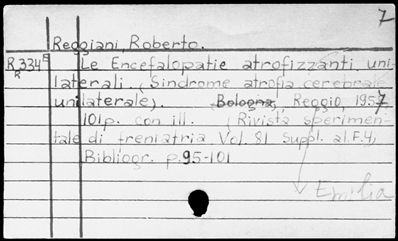 7
Reggiani, Roberto.
R334E Le Encefalopatie atrofizzanti uni-
R laterali. (Sindrome atrofia cerebrale
unilaterale). Bologna, Reggio, 1957
101p. con ill. (Rivista sperimen-
tale di freniatria, Vol. 81 Suppl. al F.4,
Bibliogr. p.95-101
Emilia